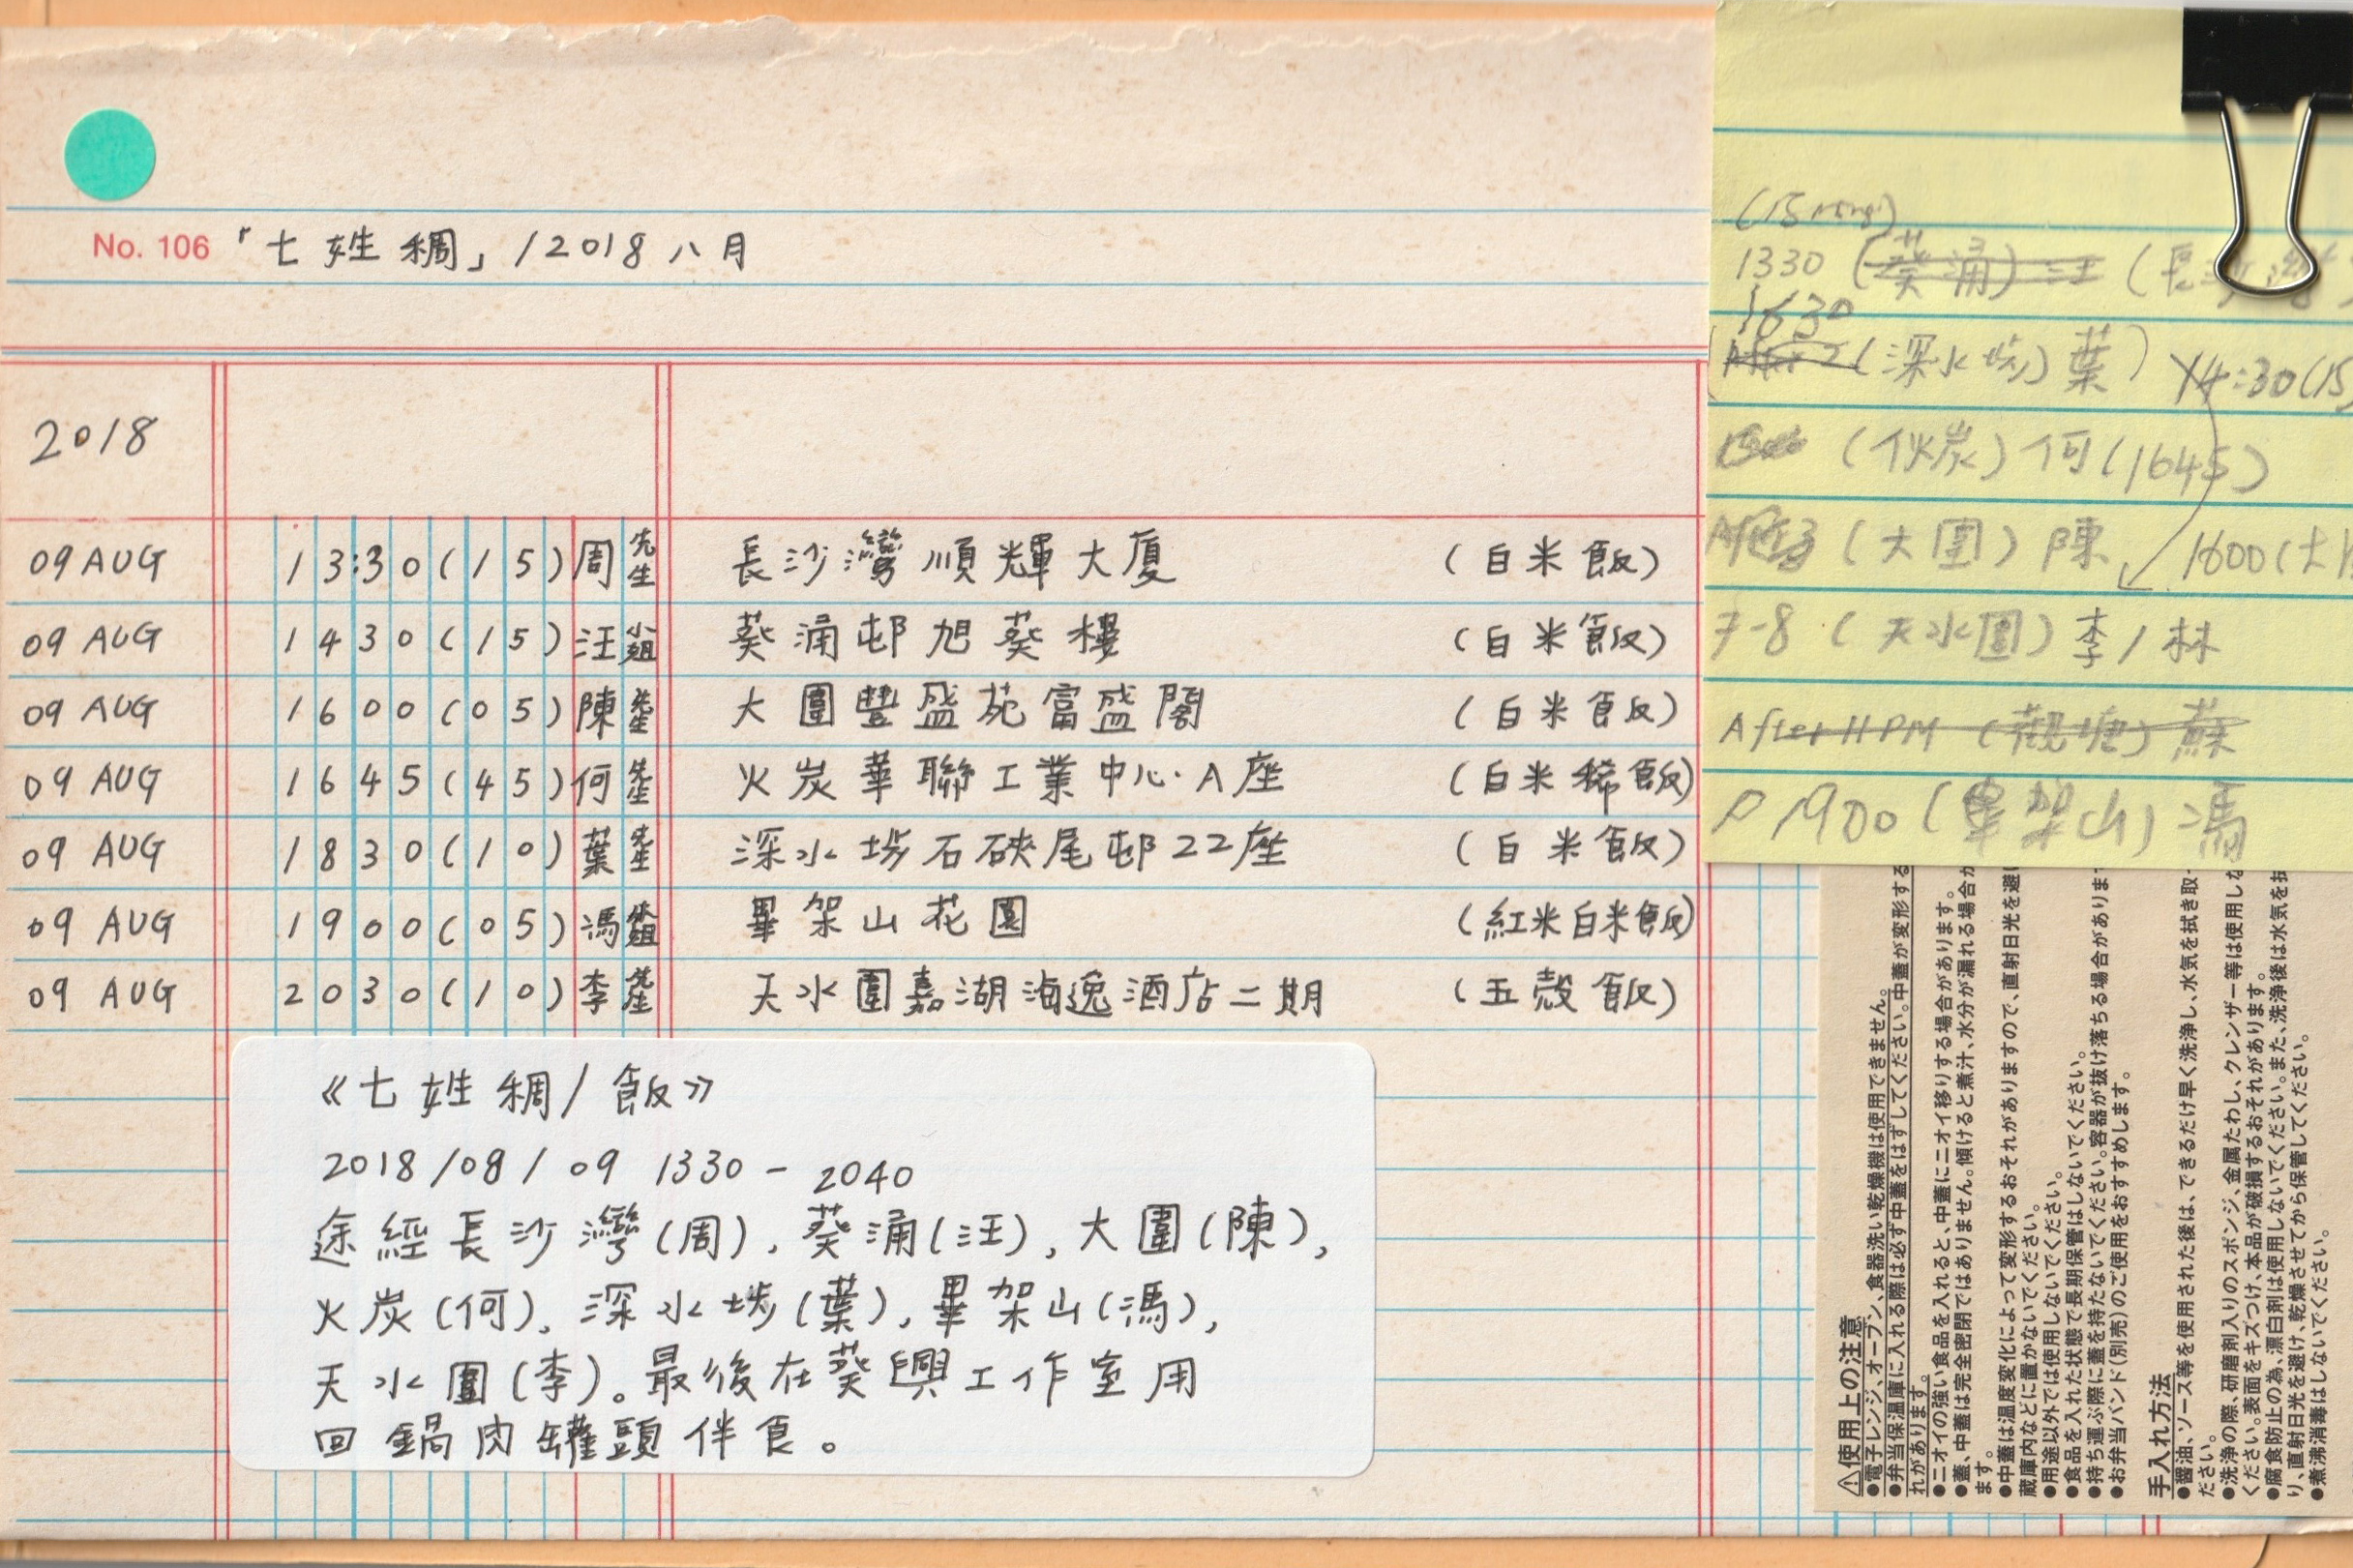 No. 106 「七姓稠」/2018 八月
2018
09 AUG 13:30(15) 周先生 長沙灣順輝大廈 (白米飯)
09 AUG 1430(15) 汪小姐 葵涌邨旭葵樓 (白米飯)
09 AUG 1600(05) 陳先生 大圍豐盛苑富盛閣 (白米飯)
09 AUG 1645(45) 何先生 火炭華聯工業中心·A座 (白米稀飯)
09 AUG 1830(10) 葉先生 深水埗石硤尾邨22座 (白米飯)
09 AUG 1900(05) 馮小姐 畢架山花園 (紅米白米飯)
09 AUG 2030(10) 李先生 天水圍嘉湖海逸酒店二期 (五殼飯)
《七姓稠/飯》
2018/08/09 1330-2040
途經長沙灣(周), 葵涌(汪), 大圍(陳),
火炭(何), 深水埗(葉), 畢架山(馮),
天水圍(李)。最後在葵興工作室用
回鍋肉罐頭伴食。
1330 (葵涌) 汪 (長沙灣
1630
(深水埗) 葉) 14:30(15
(伙炭) 何(1645)
(大圍) 陳 1600(大
7-8 (天水圍) 李/林
After HPM (觀塘) 蘇
1900 (畢架山) 馮
⚠使用上の注意
●電子レンジ、オーブン、食器洗い乾燥機は使用できません。
●弁当保温庫に入れる際は必ず中蓋をはずしてください。中蓋が変形する
れがあります。
●ニオイの強い食品を入れると、中蓋にニオイ移りする場合があります。
●蓋、中蓋は完全密閉ではありません。傾けると煮汁、水分が漏れる場合が
ます。
●中蓋は温度変化によって変形するおそれがありますので、直射日光を避け
蔵庫内などに置かないでください。
●用途以外では使用しないでください。
●食品を入れた状態で長期保管はしないでください。
●持ち運ぶ際に蓋を持たないでください。容器が抜け落ちる場合がありま
●お弁当バンド(別売)のご使用をおすすめします。
手入れ方法
●醤油、ソース等を使用された後は、できるだけ早く洗浄し、水気を拭き取っ
ださい。
●洗浄の際、研磨剤入りのスポンジ、金属たわし、クレンザー等は使用しな
ください。表面をキズつけ、本品が破損するおそれがあります。
●腐食防止の為、漂白剤は使用しないでください。また、洗浄後は水気を拭
り、直射日光を避け、乾燥させてから保管してください。
●煮沸消毒はしないでください。